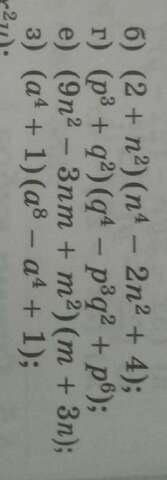 б) (2 + n²)(n⁴ − 2n² + 4);
г) (p³ + q²)(q⁴ − p³q² + p⁶);
е) (9n² − 3nm + m²)(m + 3n);
з) (a⁴ + 1)(a⁸ − a⁴ + 1);